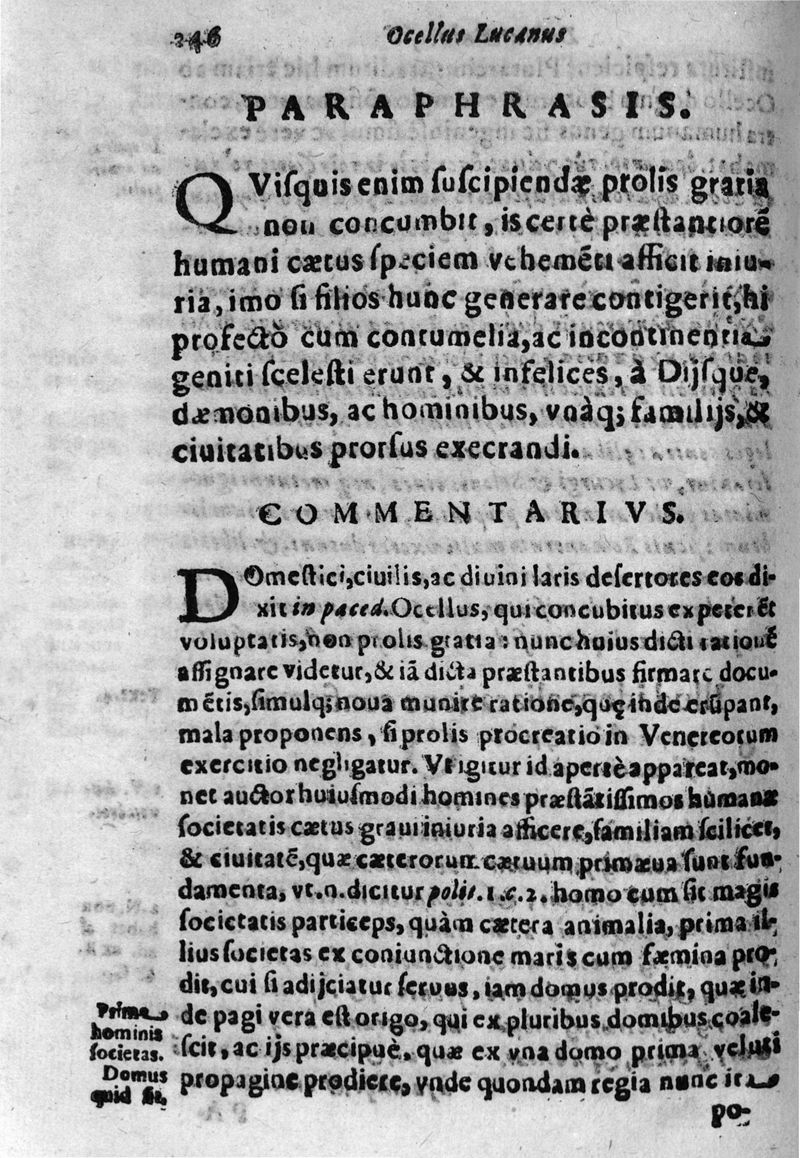 246 Ocellus Lucanus
PARAPHRASIS.
QVisquis enim suscipiendæ prolis gratia
non concumbit, is certè præstantiorē
humani cætus speciem vehemēti afficit iniu-
ria, imo si filios hunc generare contigerit, hi
profectò cum contumelia, ac incontinentia
geniti scelesti erunt, & infelices, à Dijsque,
dæmonibus, ac hominibus, vnàq; familijs, &
ciuitatibus prorsus execrandi.
COMMENTARIVS.
DOmestici, ciuilis, ac diuini laris desertores eos di-
xit in paced. Ocellus, qui concubitus expeterēt
voluptatis, non prolis gratia: nunc huius dicti rationē
assignare videtur, & iā dicta præstantibus firmare docu-
mētis, simulq; noua munire ratione, quę inde erūpant,
mala proponens, si prolis procreatio in Venereorum
exercitio negligatur. Vt igitur id apertè appareat, mo-
net auctor huiusmodi homines præstātissimos humanæ
societatis cætus graui iniuria afficere, familiam scilicet,
& ciuitatē, quæ cæterorum cætuum primæua sunt fun-
damenta, vt. n. dicitur polit. 1. c. 2. homo cum sit magis
societatis particeps, quàm cætera animalia, prima il-
lius societas ex coniunctione maris cum fæmina pro-
dit, cui si adijciatur seruus, iam domus prodit, quæ in-
de pagi vera est origo, qui ex pluribus domibus coale-
scit, ac ijs præcipuè, quæ ex vna domo prima veluti
propagine prodiere, vnde quondam regia nunc ita
po-
Prima
hominis
societas.
Domus
quid sit,